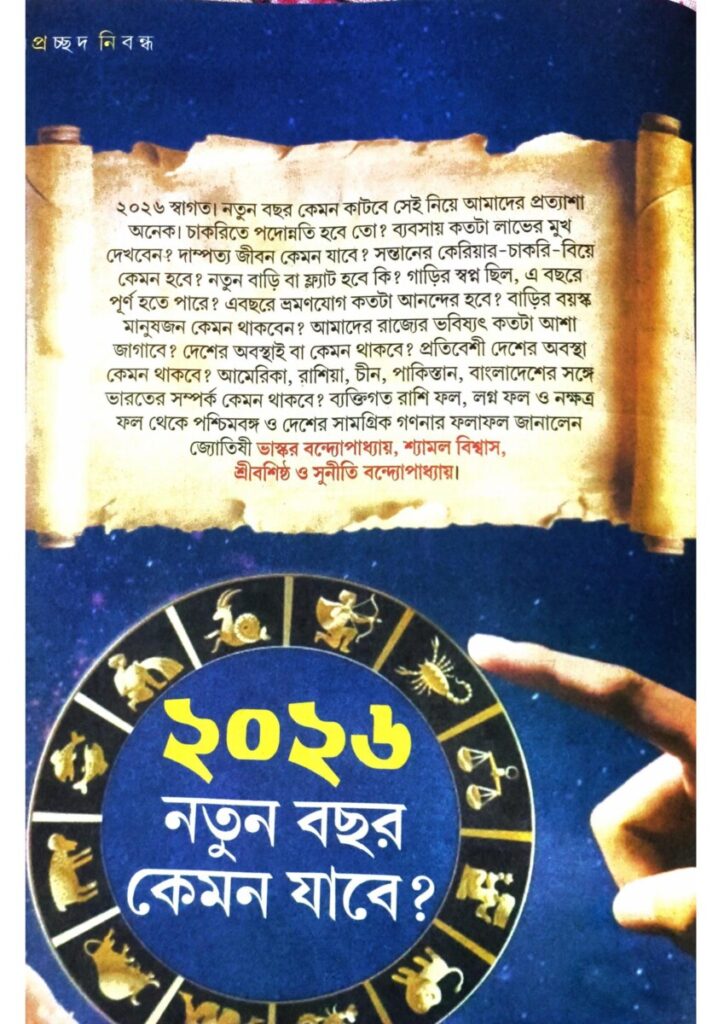 প্রচ্ছদ নিবন্ধ
২০২৬ স্বাগত। নতুন বছর কেমন কাটবে সেই নিয়ে আমাদের প্রত্যাশা
অনেক। চাকরিতে পদোন্নতি হবে তো? ব্যবসায় কতটা লাভের মুখ
দেখবেন? দাম্পত্য জীবন কেমন যাবে? সন্তানের কেরিয়ার-চাকরি-বিয়ে
কেমন হবে? নতুন বাড়ি বা ফ্ল্যাট হবে কি? গাড়ির স্বপ্ন ছিল, এ বছরে
পূর্ণ হতে পারে? এবছরে ভ্রমণযোগ কতটা আনন্দের হবে? বাড়ির বয়স্ক
মানুষজন কেমন থাকবেন? আমাদের রাজ্যের ভবিষ্যৎ কতটা আশা
জাগাবে? দেশের অবস্থাই বা কেমন থাকবে? প্রতিবেশী দেশের অবস্থা
কেমন থাকবে? আমেরিকা, রাশিয়া, চীন, পাকিস্তান, বাংলাদেশের সঙ্গে
ভারতের সম্পর্ক কেমন থাকবে? ব্যক্তিগত রাশি ফল, লগ্ন ফল ও নক্ষত্র
ফল থেকে পশ্চিমবঙ্গ ও দেশের সামগ্রিক গণনার ফলাফল জানালেন
জ্যোতিষী ভাস্কর বন্দ্যোপাধ্যায়, শ্যামল বিশ্বাস,
শ্রীবশিষ্ঠ ও সুনীতি বন্দ্যোপাধ্যায়।
২০২৬
নতুন বছর
কেমন যাবে?